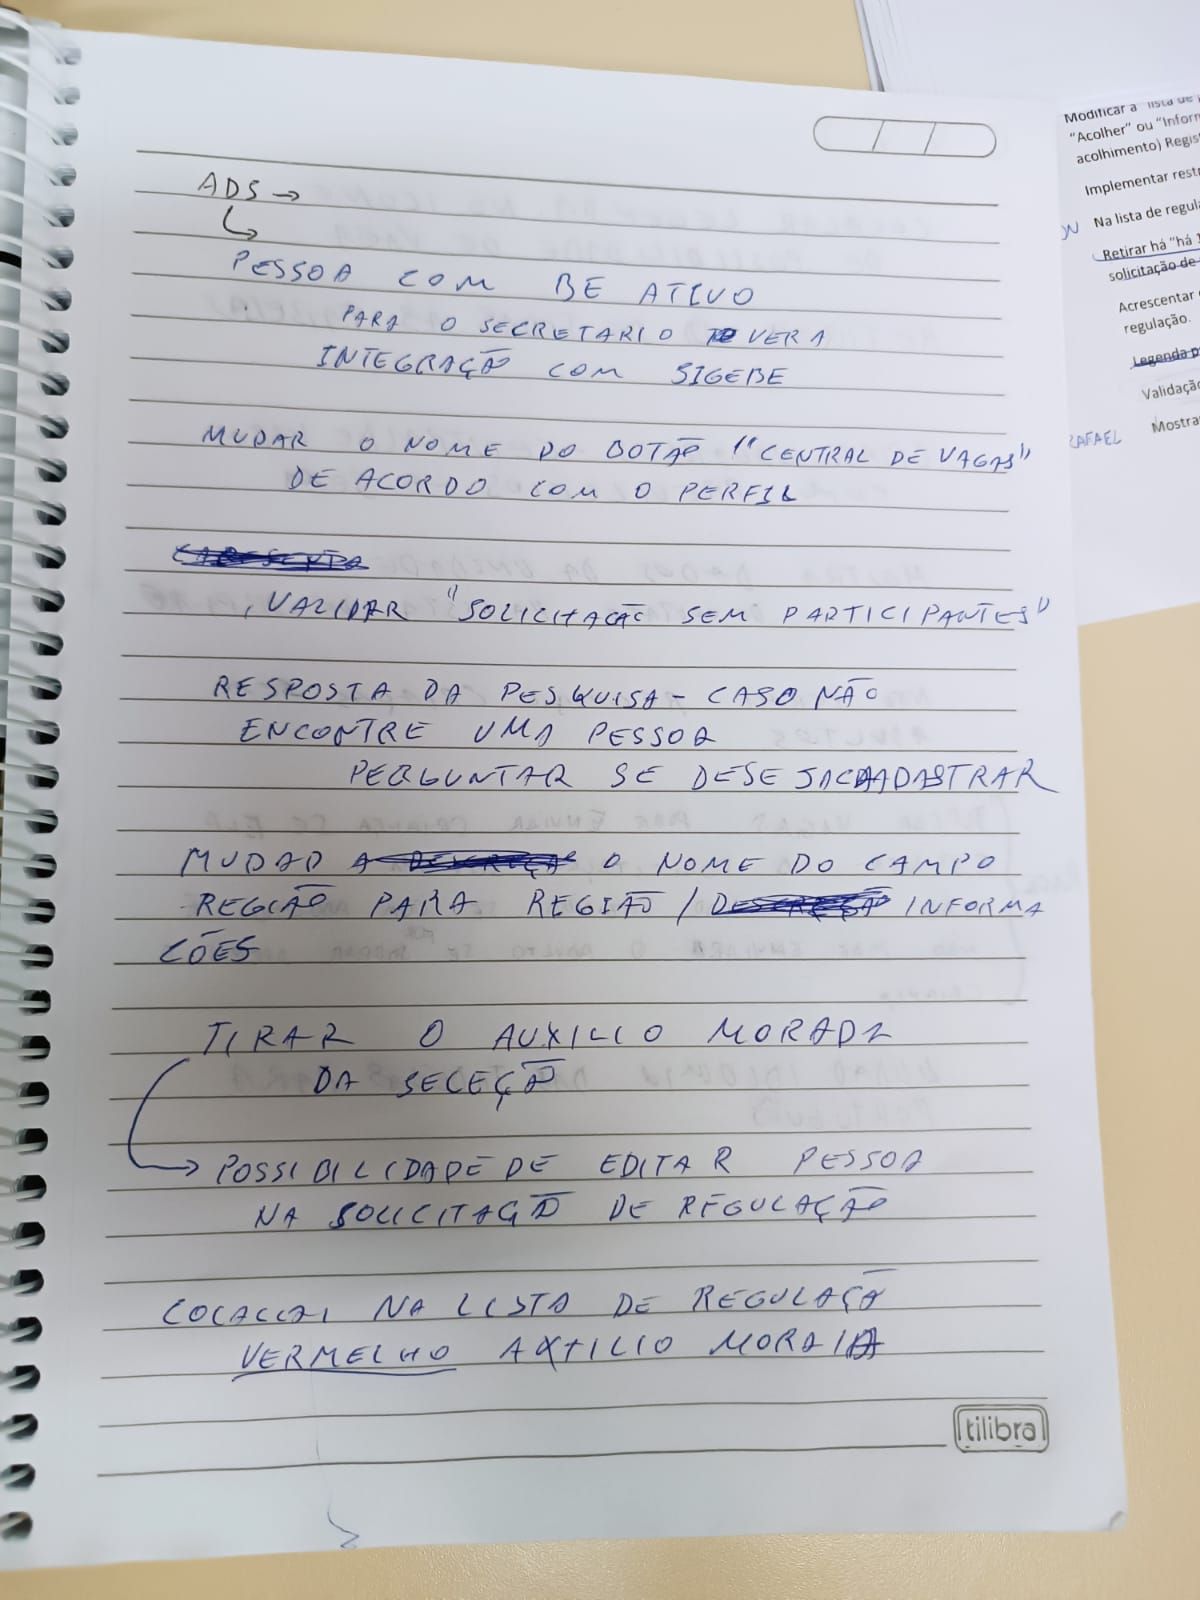 ADS →
PESSOA COM BE ATIVO
PARA O SECRETARIO VERA
INTEGRAÇÃO COM SIGEBE
MUDAR O NOME DO BOTÃO "CENTRAL DE VAGAS"
DE ACORDO COM O PERFIL
, VALIDAR "SOLICITAÇÃO SEM PARTICIPANTES"
RESPOSTA DA PESQUISA - CASO NÃO
ENCONTRE UMA PESSOA
PERGUNTAR SE DESEJA CADASTRAR
MUDAD A O NOME DO CAMPO
REGIÃO PARA REGIÃO / INFORMA
ÇÕES
TIRAR O AUXILIO MORADA
DA SELEÇÃO
→ POSSIBILIDADE DE EDITAR PESSOA
NA SOLICITAÇÃO DE REGULAÇÃO
NA LISTA DE REGULAÇÃ
VERMELHO AXTILIO MORAIA
tilibra
Modificar a "lista de
"Acolher" ou "Inform
acolhimento) Regis
Implementar restr
Na lista de regula
Retirar há "há 1
solicitação de
Acrescentar
regulação.
Legenda p
Validação
RAFAEL Mostra